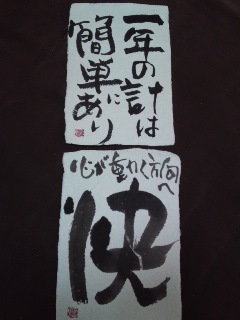 一年の計は
簡単に
あり
心が動く方向へ
快